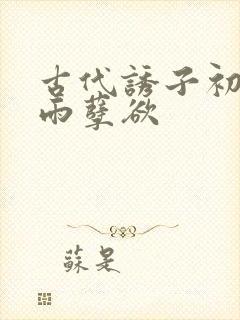 古代誘子初
雨孽欲
蘇是